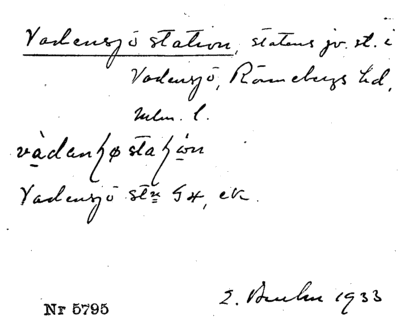 Vadensjö station, statens jv. st. i
Vadensjö, Rönnebergs hd,
Mlm. l.
vàdanʃøstaʃòn
Vadensjö stn G4, ek.
1933
Nr 5795